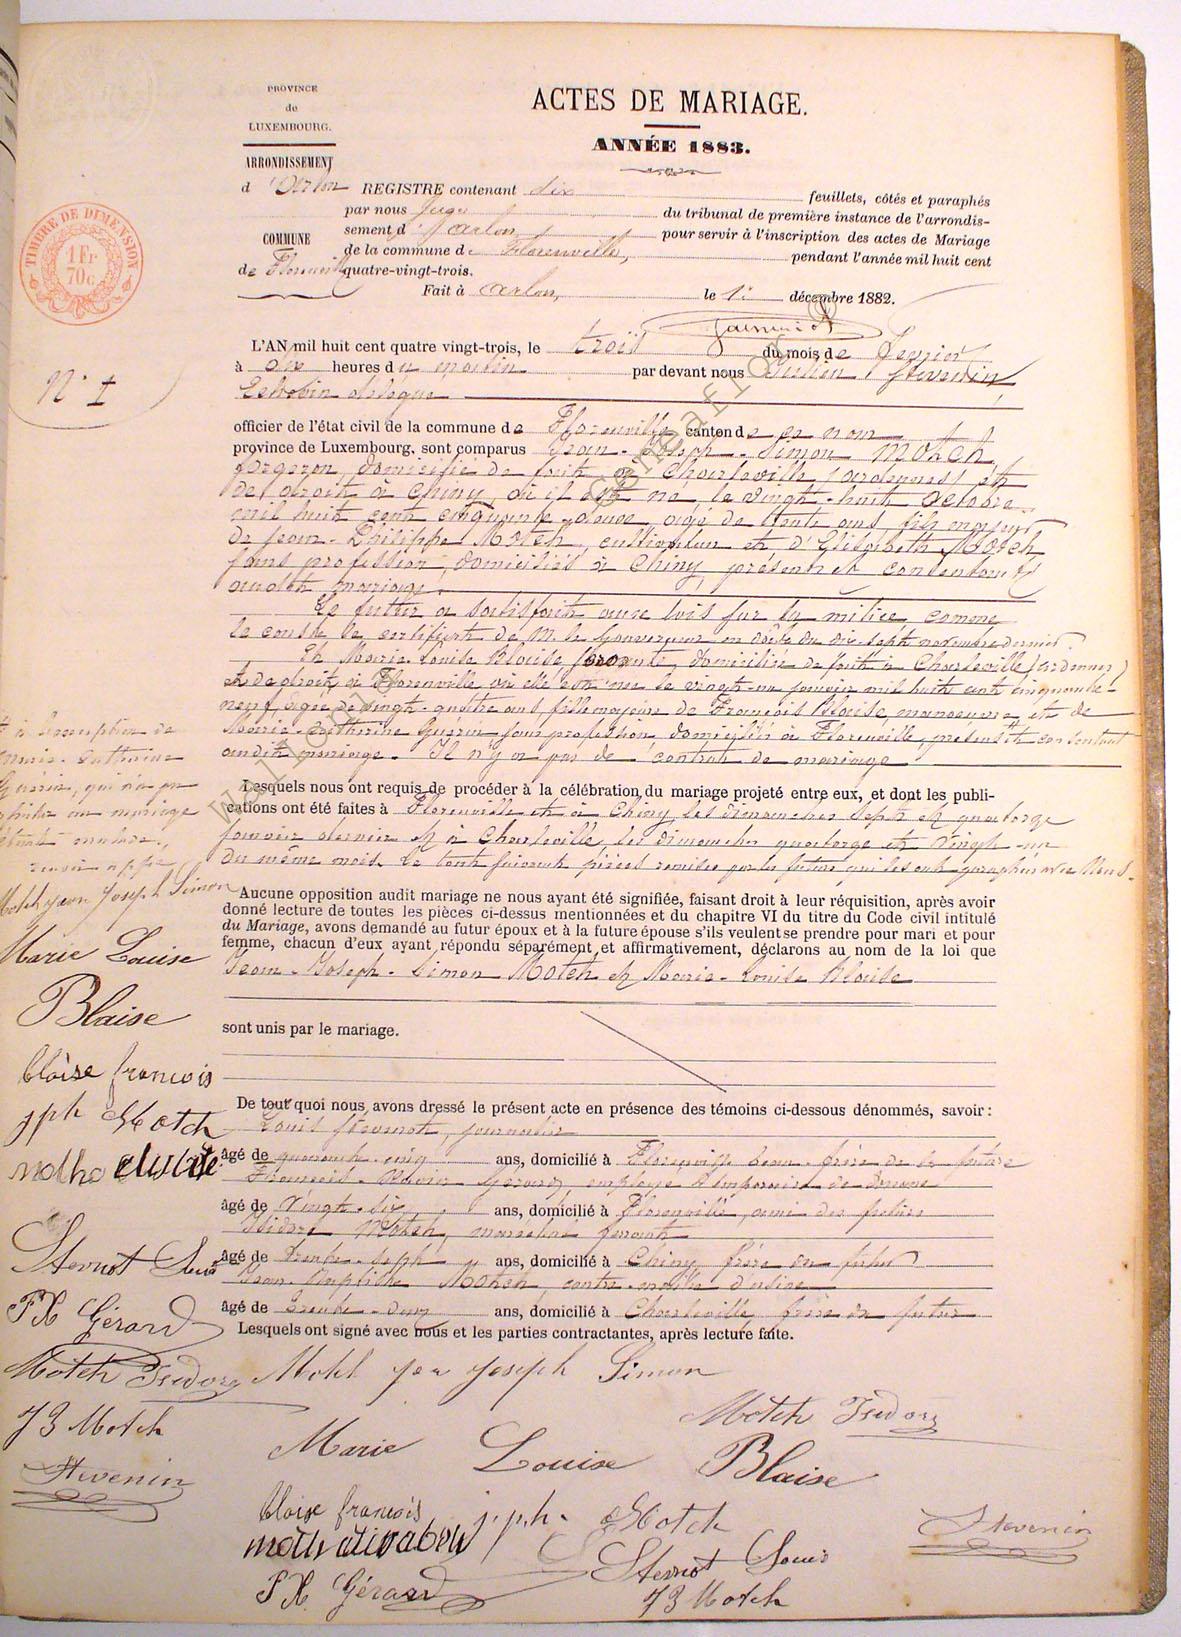 PROVINCE
de
LUXEMBOURG.
ARRONDISSEMENT
d'Arlon
COMMUNE
de Florenville
TIMBRE DE DIMENSION
1 Fr
70c
N° 1
ACTES DE MARIAGE.
ANNÉE 1883.
REGISTRE contenant dix feuillets, côtés et paraphés
par nous Juge du tribunal de première instance de l'arrondis-
sement d'Arlon pour servir à l'inscription des actes de Mariage
de la commune de Florenville, pendant l'année mil huit cent
quatre-vingt-trois.
Fait à Arlon, le 1r décembre 1882.
L'AN mil huit cent quatre vingt-trois, le trois du mois de février
à dix heures du matin par devant nous Julien Stevenin
Echevin délégué
officier de l'état civil de la commune de Florenville canton de ce nom
province de Luxembourg, sont comparus Jean-Joseph-Simon Motch,
forgeron, domicilié de fait à Charleville (Ardennes) et
de droit à Chiny, où il est né, le vingt-huit octobre
mil huit cent cinquante-deux, âgé de trente ans, fils majeur
de Jean-Philippe Motch, cultivateur et d'Elisabeth Motch
sans profession, domiciliés à Chiny, présents et consentant
au dit mariage.
Le futur a satisfait aux lois sur la milice comme
le constate le certificat de Mr le Gouverneur en date du dix-sept novembre dernier.
Et Marie-Louise Blaise, servante, domiciliée de fait à Charleville (Ardennes)
et de droit à Florenville où elle est née le vingt-un janvier mil huit cent cinquante-
neuf, âgée de vingt-quatre ans, fille majeure de François Blaise, manoeuvre et de
Marie-Catherine Guérin, sans profession, domiciliés à Florenville, présents et consentant
au dit mariage. Il n'y a pas de contrat de mariage
Lesquels nous ont requis de procéder à la célébration du mariage projeté entre eux, et dont les publi-
cations ont été faites à Florenville et à Chiny, les dimanches sept et quatorze
janvier dernier et à Charleville, les dimanches quatorze et vingt-un
du même mois. Le tout suivant pièces remises par les futurs qui les ont paraphées avec Nous.
à l'exception de
Marie-Catherine
Guérin, qui n'a pu
au mariage
étant malade.
Motch jean Joseph Simon
Marie Louise
Blaise
blaise francois
jph Motch
Stevnot Louis
FX Gérard
Motch Isidore
JB Motch
Stevenin
Aucune opposition audit mariage ne nous ayant été signifiée, faisant droit à leur réquisition, après avoir
donné lecture de toutes les pièces ci-dessus mentionnées et du chapitre VI du titre du Code civil intitulé
du Mariage, avons demandé au futur époux et à la future épouse s'ils veulent se prendre pour mari et pour
femme, chacun d'eux ayant répondu séparément et affirmativement, déclarons au nom de la loi que
Jean-Joseph-Simon Motch et Marie-Louise Blaise
sont unis par le mariage.
De tout quoi nous avons dressé le présent acte en présence des témoins ci-dessous dénommés, savoir :
Louis Stevnot, journalier
âgé de quarante-cinq ans, domicilié à Florenville beau-frère de la future
François-Xavier Gérard, employé temporaire de douane
âgé de vingt-six ans, domicilié à Florenville, ami des futurs
Isidore Motch, maréchal ferrant
âgé de trente-sept ans, domicilié à Chiny frère du futur
Jean-Baptiste Motch, contre-maître d'usine
âgé de trente-deux ans, domicilié à Charleville, frère du futur
Lesquels ont signé avec nous et les parties contractantes, après lecture faite.
Motch jean joseph Simon
Motch Isidore
Marie Louise Blaise
blaise francois jph. Motch
Stevenin
Stevnot Louis
FX Gérard
JB Motch